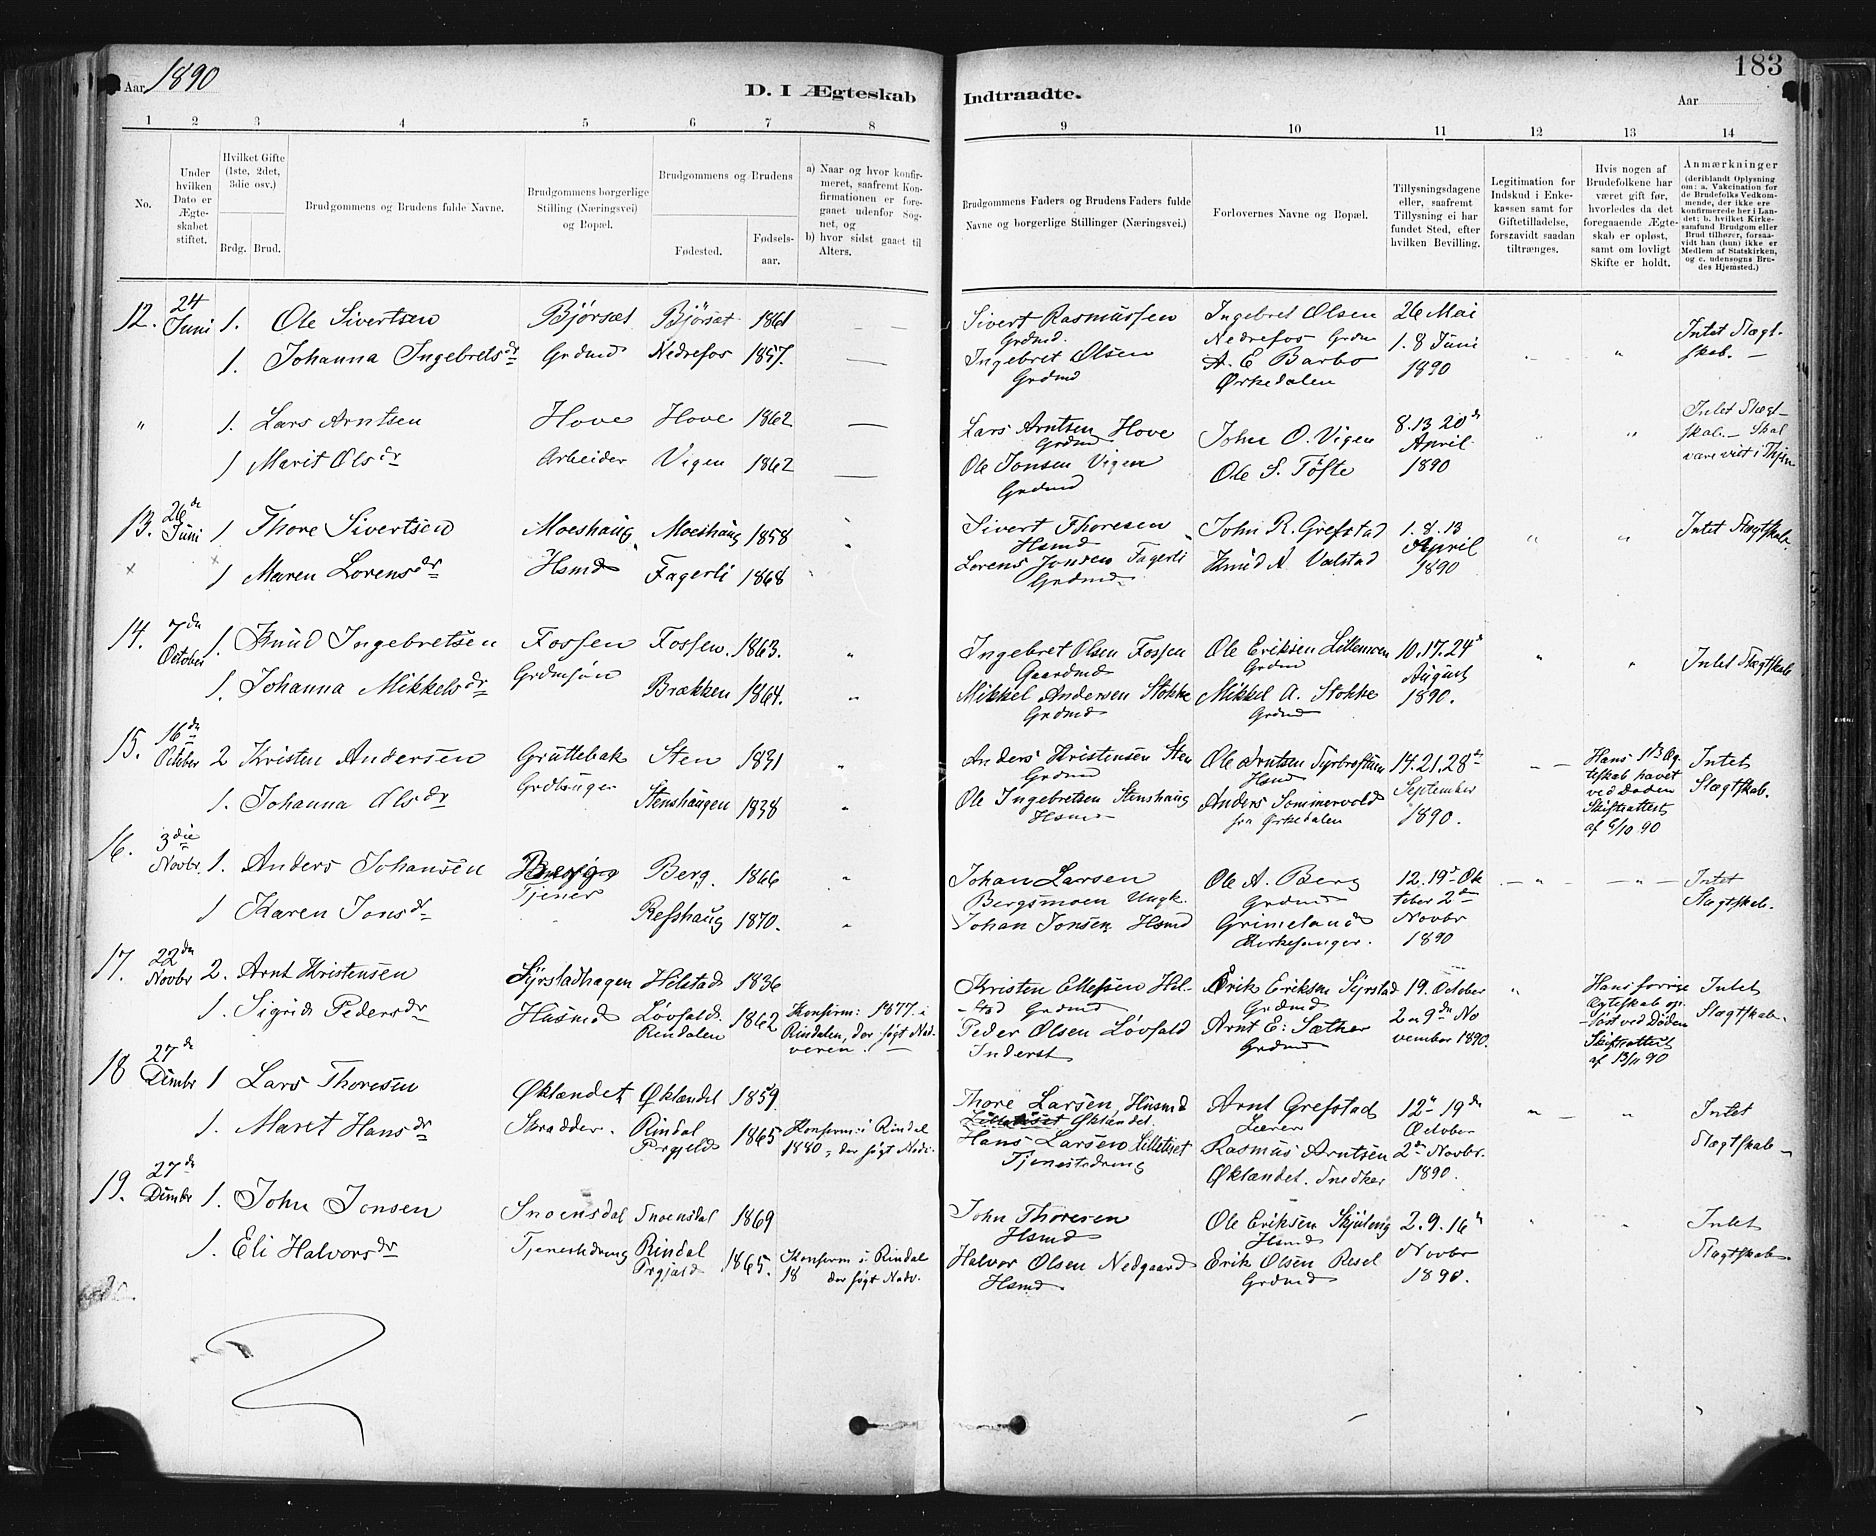 Aar 1890
D. I Ægteskab
Indtraadte.
Aar
183
1 2 3 4 5 6 7 8 9 10 11 12 13 14
No.
Under hvilken Dato er Ægteskabet stiftet.
Hvilket Gifte (1ste, 2det, 3die osv.)
Brdg. Brud.
Brudgommens og Brudens fulde Navne.
Brudgommens borgerlige Stilling (Næringsvei) og Bopæl.
Brudgommens og Brudens
Fødested.
Fødsels-aar.
a) Naar og hvor konfirmeret, saafremt Konfirmationen er foregaaet udenfor Sognet, og
b) hvor sidst gaaet til Alters.
Brudgommens Faders og Brudens Faders fulde Navne og borgerlige Stillinger (Næringsvei.)
Forlovernes Navne og Bopæl.
Tillysningsdagene eller, saafremt Tillysning ei har fundet Sted, efter hvilken Bevilling.
Legitimation for Indskud i Enkekassen samt for Giftetilladelse, forsaavidt saadan tiltrænges.
Hvis nogen af Brudefolkene har været gift før, hvorledes da det foregaaende Ægteskab er opløst, samt om lovligt Skifte er holdt.
Anmærkninger (deriblandt Oplysning om: a. Vakcination for de Brudefolks Vedkommende, der ikke ere konfirmerede her i Landet; b. hvilket Kirkesamfund Brudgom eller Brud tilhører, forsaavidt han (hun) ikke er Medlem af Statskirken, og c. udensogns Brudes Hjemsted.)
12. 24 Juni 1. Ole Sivertsen Bjørsæt Bjørsæt 1861 — Sivert Rasmussen Grdmd. Ingebret Olsen Nedrefos Grdm 26 Mai
1. Johanna Ingebretsdr Grdmd Nedrefos 1857. — Ingebret Olsen Grdmd A. E. Barbo Ørkedalen 1. 8 Juni 1890 Intet Slægtskab. —
" 1. Lars Arntsen Hove Hove 1862 — Lars Arntsen Hove Grdmd John O. Vigen 8. 13 20de April
1 Marit Olsdr Arbeider Vigen 1862 — Ole Jonsen Vigen Grdmd Ole S. Tøfte 1890 Intet Slægtskab. — Skal være viet i Thjem
13. 26de Juni 1 Thore Sivertsen Moeshaug Moeshaug 1858 " Sivert Thoresen Hsmd John R. Grefstad 1. 8. 13 April
x 1 Maren Lorensdr Hsmd Fagerli 1868 " Lorens Jonsen Fagerli Grdmd. Knud A. Valstad 1890 Intet Slægtskab.
14. 7de October 1. Knud Ingebretsen Fossen Fossen. 1863. " Ingebret Olsen Fossen Gaardmd Ole Eriksen Lillemoen Grdm 10. 17. 24de August
1. Johanna Mikkelsdr Grdmsøn Brækken 1864. " Mikkel Andersen Stokke Grdmd Mikkel A. Stokke Grdmd 1890. Intet Slægtskab
15. 16de October 2 Kristen Andersen Gruttebak Sten 1831 " Anders Kristensen Sten Grdmd Ole Arntsen Hsmd 14. 21. 28de September
1. Johanna Olsdr Stenshaugen 1838 " Ole Ingebretsen Stenshaug Hsmd Anders Sommervold fra Ørkedalen 1890. Hans 1ste Ægteskab hævet ved Døden Skifteattest af 6/10 90 Intet Slægtskab.
16. 3die Novbr. 1. Anders Johansen Tjener Berg. 1866 " Johan Larsen Bergsmoen Ungk. Ole A. Berg Grdmd 12. 19de October 2den
1 Karen Jonsdr Refshaug 1870. " Johan Jonsen Hsmd Grimeland Kirkesanger. Novbr 1890 Intet Slægtskab.
17. 22de Novbr 2. Arnt Kristensen Syrstadhagen Helstad 1836 Kristen Ellefsen Helstad Grdmd Erik Eriksen Syrstad Grdmd 19. October
1. Sigrid Pedersdr Husmd Løvfald Rindalen 1862 Konfirm: 1877. i Rindalen, der søgt Nadveren. — Peder Olsen Løvfald Inderst Arnt E. Sæther Grdmd 2 og 9de November 1890. Hans forrige Ægteskab opløst ved Døden Skifteattest af 13/11 90 Intet Slægtskab.
18 27de Dcmbr 1 Lars Thoresen Øklandet Øklandet 1859. Thore Larsen, Husmd Øklandet. Arnt Grefstad Lærer 12te 19de October
1. Maret Hansdr Skradder. Rindal Prgjeld 1865 Konfirm: i Rindal 1880, der søgt Nadv. Hans Larsen Lilletiset Tjenestedreng Rasmus Arntsen Øklandet. Snedker 2den Novbr. 1890. Intet Slægtskab.
19. 27de Dcmbr 1. John Jonsen Snoensdal Snoensdal 1869 John Thoresen Hsmd Ole Eriksen Skjuleng Hsmd 2. 9. 16de
1. Eli Halvorsdr Tjenestedreng Rindal Prgjeld 1865. Konfirm i Rindal 18 der søgt Nadv. Halvor Olsen Nedgaard Hsmd. Erik Olsen Resel Grdmd Novbr 1890. Intet Slægtskab